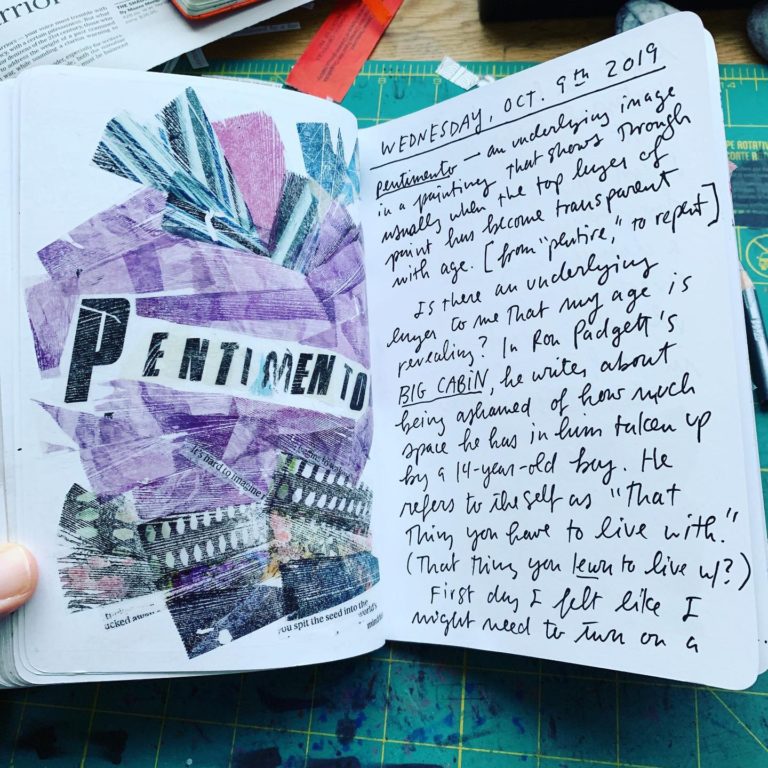 PENTIMENTO
It's hard to imagine
you spit the seed into the
world's
WEDNESDAY, OCT. 9th 2019
pentimento — an underlying image
in a painting that shows through
usually when the top layer of
paint has become transparent
with age. [from "pentire," to repent]
Is there an underlying
layer to me that my age is
revealing? In Ron Padgett's
BIG CABIN, he writes about
being ashamed of how much
space he has in him taken up
by a 14-year-old boy. He
refers to the self as "that
thing you have to live with."
(That thing you learn to live w/?)
First day I felt like I
might need to turn on a